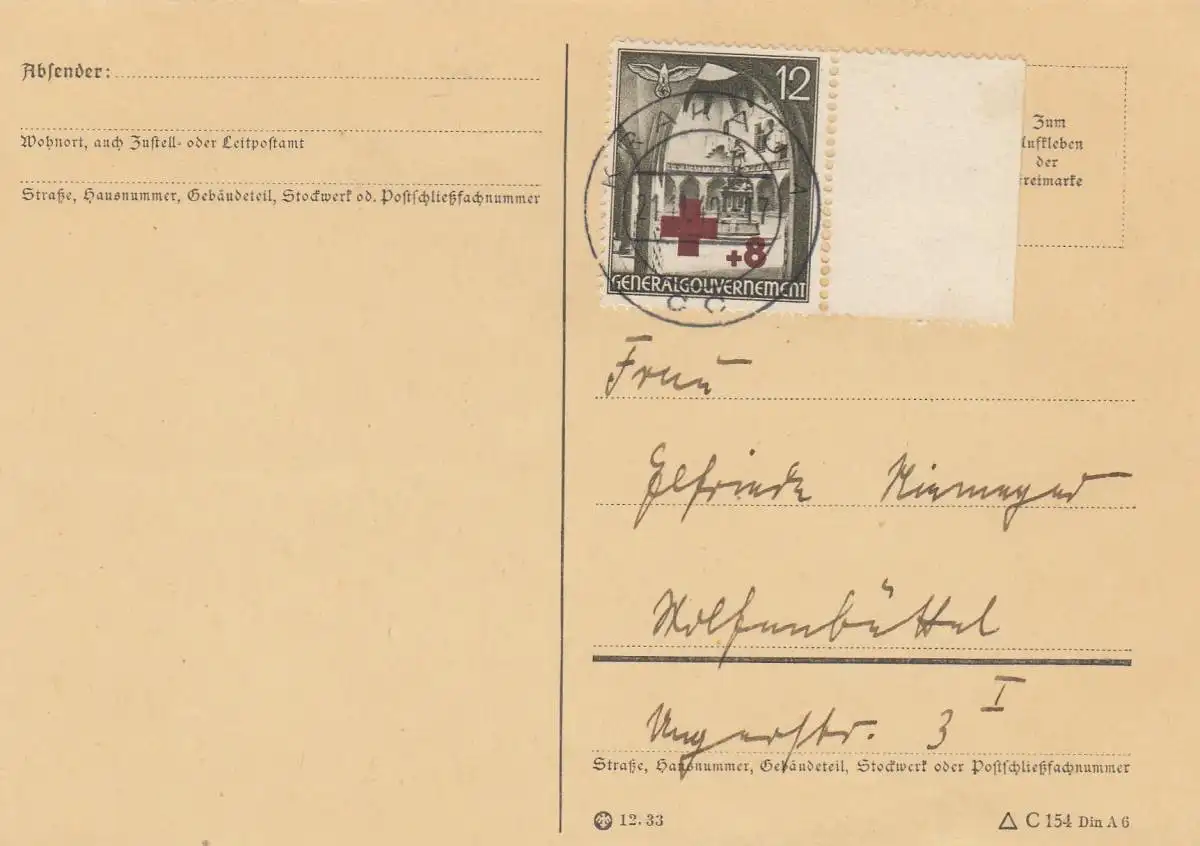 Absender:
Wohnort, auch Zustell- oder Leitpostamt
Straße, Hausnummer, Gebäudeteil, Stockwerk od. Postschließfachnummer
12
KRAKAU 1
+8
GENERALGOUVERNEMENT
cc
Zum
Aufkleben
der
Freimarke
Frau
Elfriede Niemeyer
Wolfenbüttel
Ungerstr. 3 I
Straße, Hausnummer, Gebäudeteil, Stockwerk oder Postschließfachnummer
12. 33
C 154 Din A 6